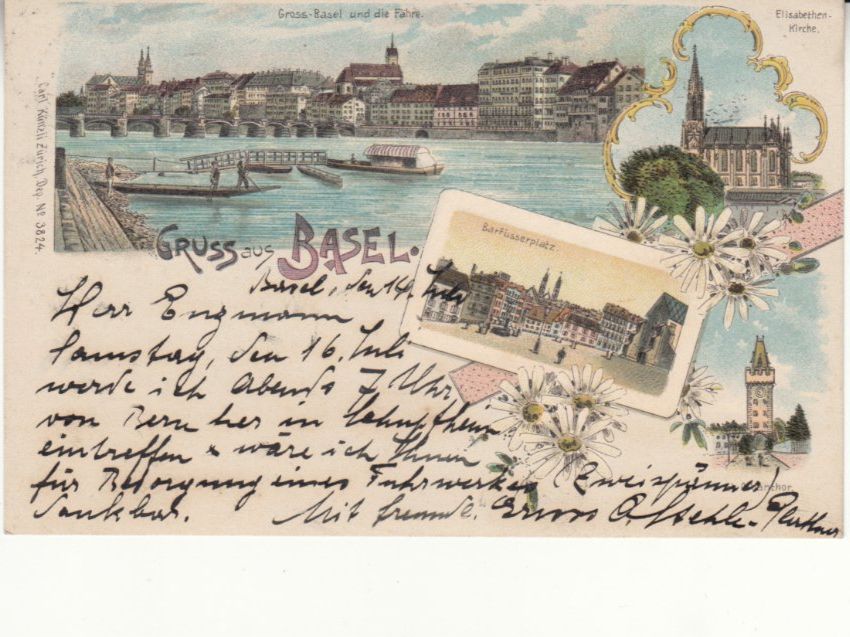 Gross-Basel und die Fähre.
Elisabethen-
Kirche.
Carl Künzli Zürich, Dep. Nº 3824.
GRUSS aus BASEL.
Barfüsserplatz.
Basel, den 14. Juli
Herr Engmann
Samstag, den 16. Juli
werde ich Abends 7 Uhr
von Bern her in
eintreffen & wäre ich Ihnen
für Besorgung eines Fuhrwerkes (Zweispänner)
dankbar. Mit freundl. Gruss